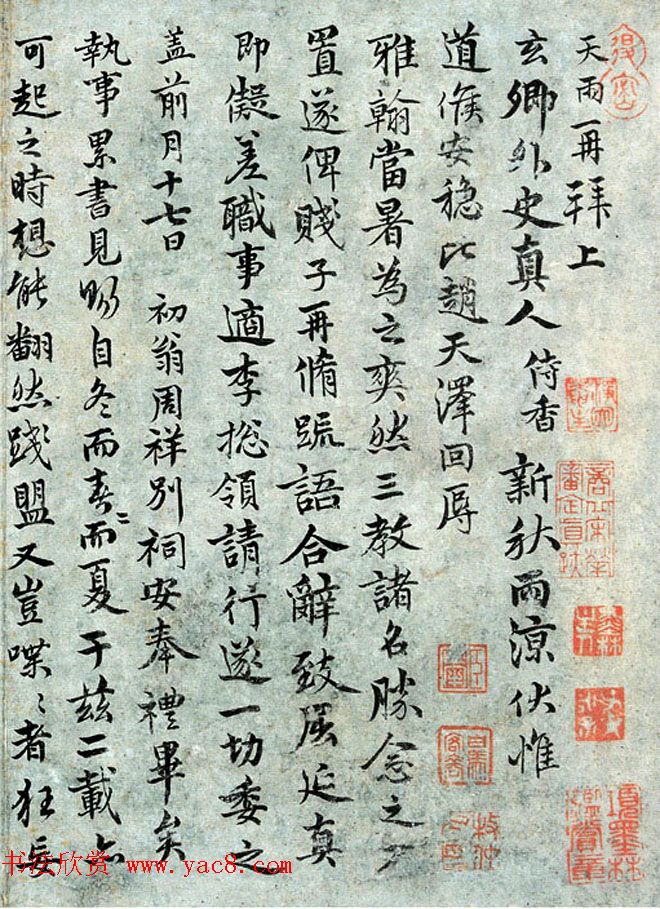 天雨再拜上
玄卿外史真人侍香新秋雨涼伏惟
道候安穩比趙天澤回辱
雅翰當暑為之爽然三教諸名勝念之
置遂俾賤子再脩疏語合辭致屈延真
即儗差職事適李総領請行遂一切委之
蓋前月十七日初翁周祥別祠安奉禮畢矣
執事累書見賜自冬而春〻而夏于茲二載亦
可起之時想能翻然踐盟又豈喋〻者狂妄
項墨林鑑賞章
书法欣赏 www.yac8.com